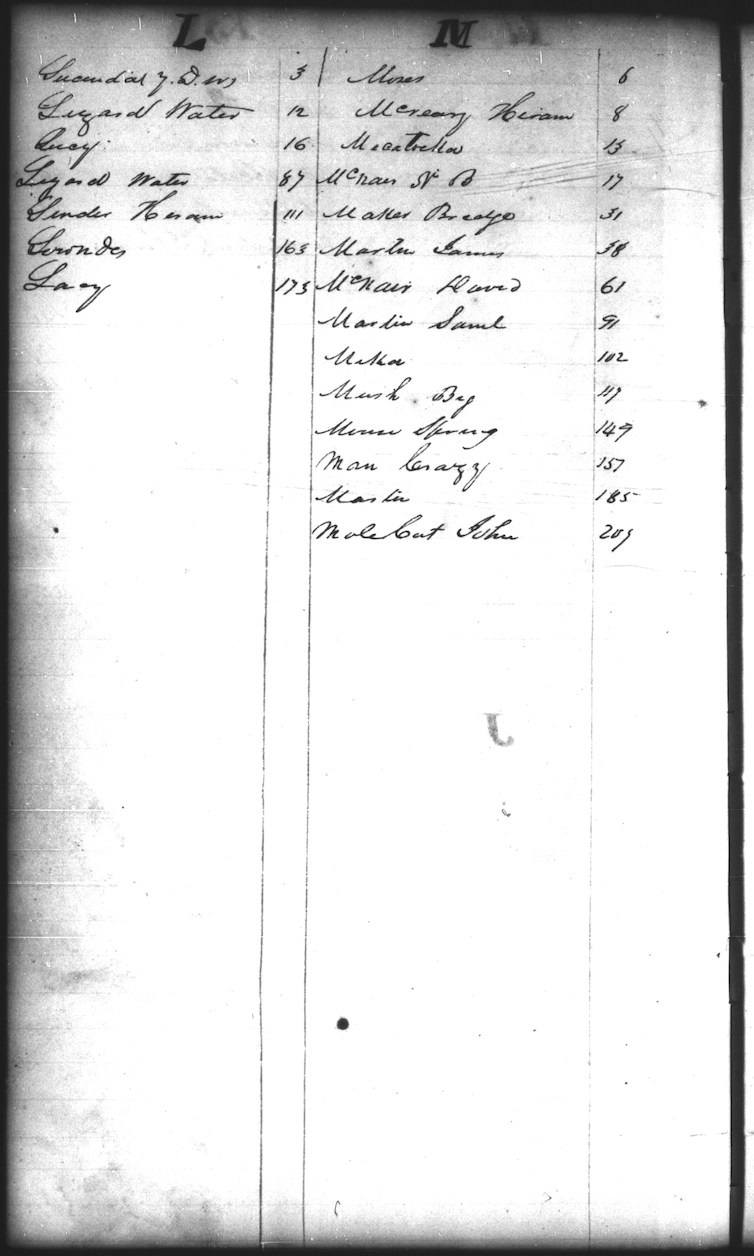 L
3
Lizard Water 12
Lucy 16
Lizard Water 87
Linder Hiram 111
Lowndes 163
Lacy 173
M
Moses 6
McCreary Hiram 8
13
McNair N B 17
Maker Bredge 31
Martin James 38
McNair David 61
Martin Saml 91
Meka 102
Mush Big 117
Mouse Spring 149
Man Crazy 157
Martin 185
Mole Cat John 209
J